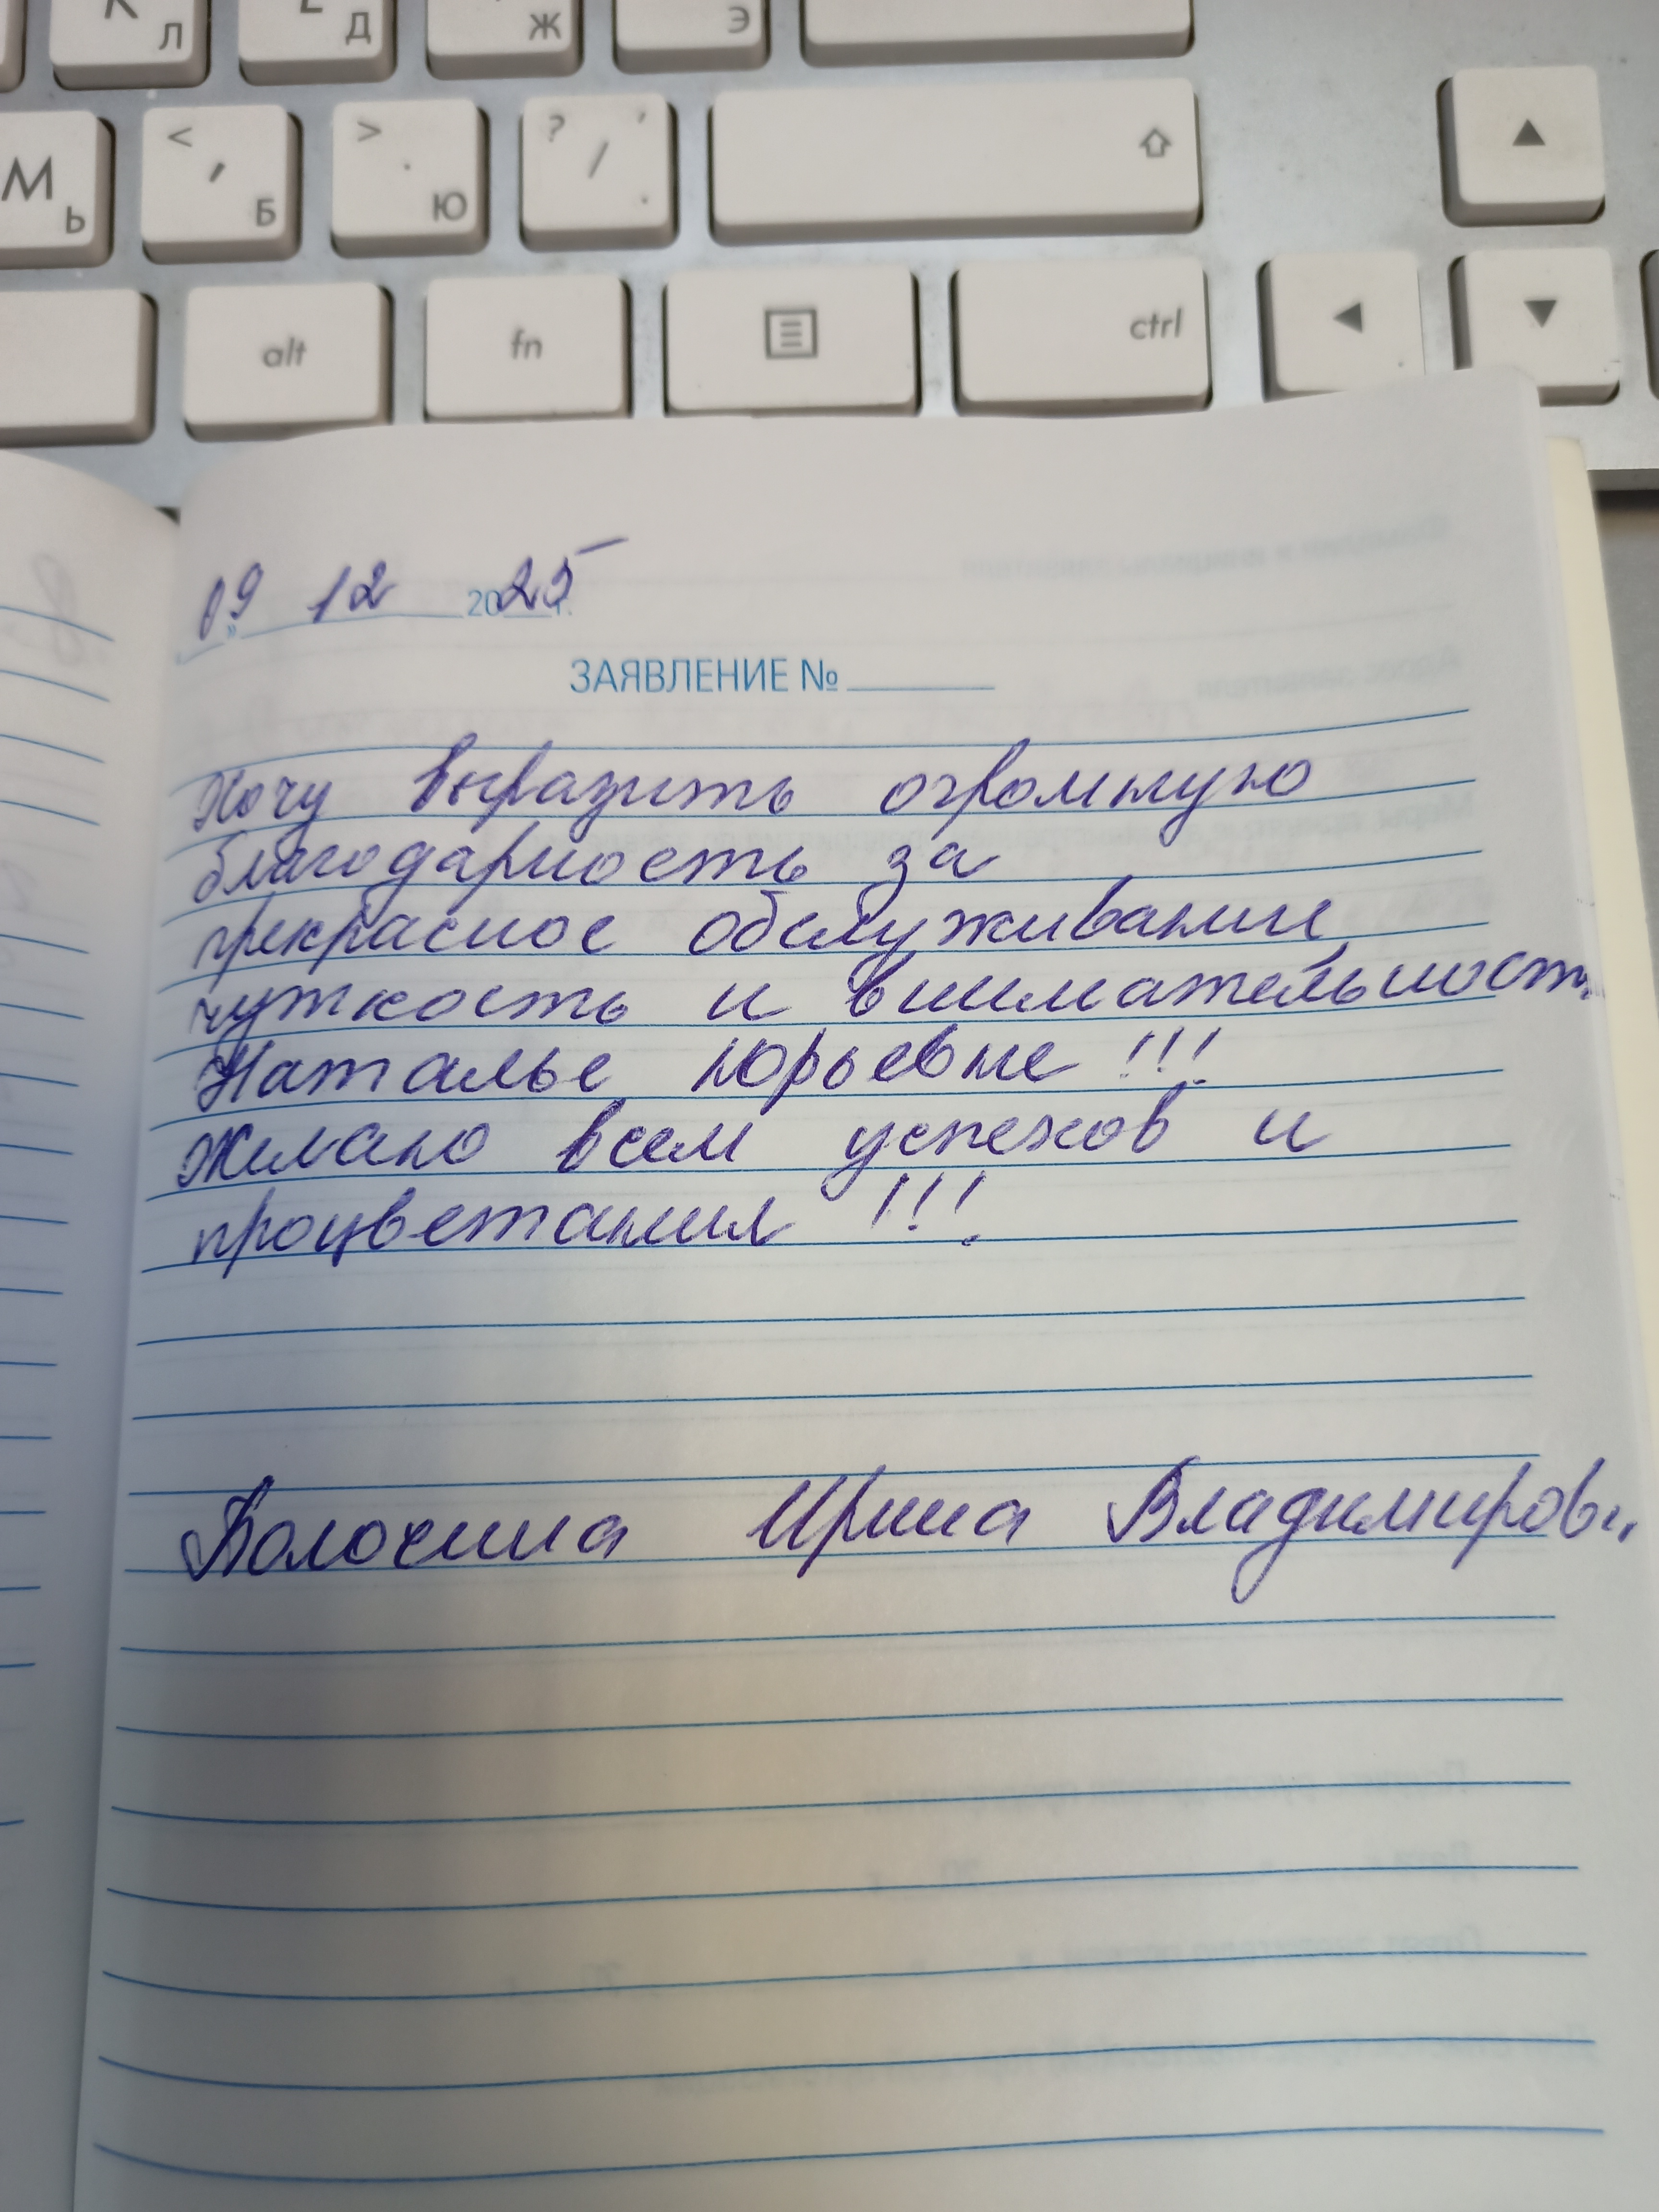 К Л Д Ж Э
М Ь < , Б > . Ю ? / ' .
alt fn ctrl
09 » 12 2025 г.
ЗАЯВЛЕНИЕ №
Хочу выразить огромную
благодарность за
прекрасное обслуживание,
чуткость и внимательность
Наталье Юрьевне !!!
Желаю всем успехов и
процветания !!!
Ирина Владимировн